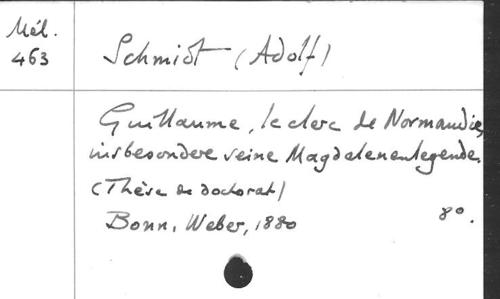 Mél.
463
Schmidt (Adolf)
Guillaume, le clerc de Normandie,
insbesondere seine Magdalenenlegende.
(Thèse de doctorat)
Bonn, Weber, 1880
8º.